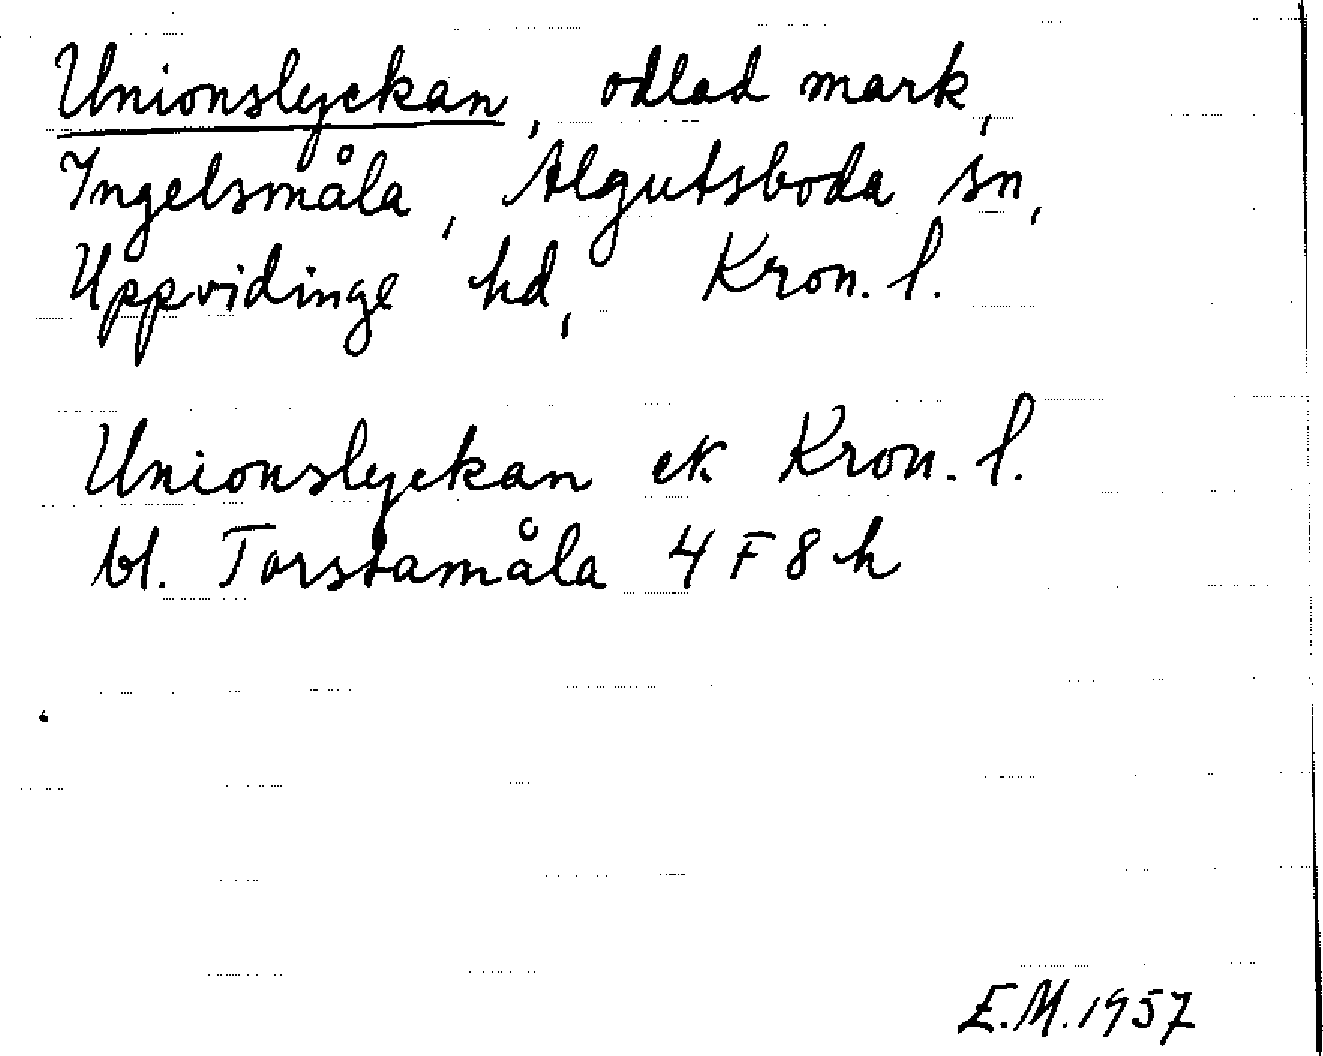 Unionslyckan, odlad mark,
Ingelsmåla, Algutsboda sn,
Uppvidinge hd, Kron. l.
Unionslyckan ek Kron. l.
bl. Torstamåla 4 F 8 h
E.M. 1957